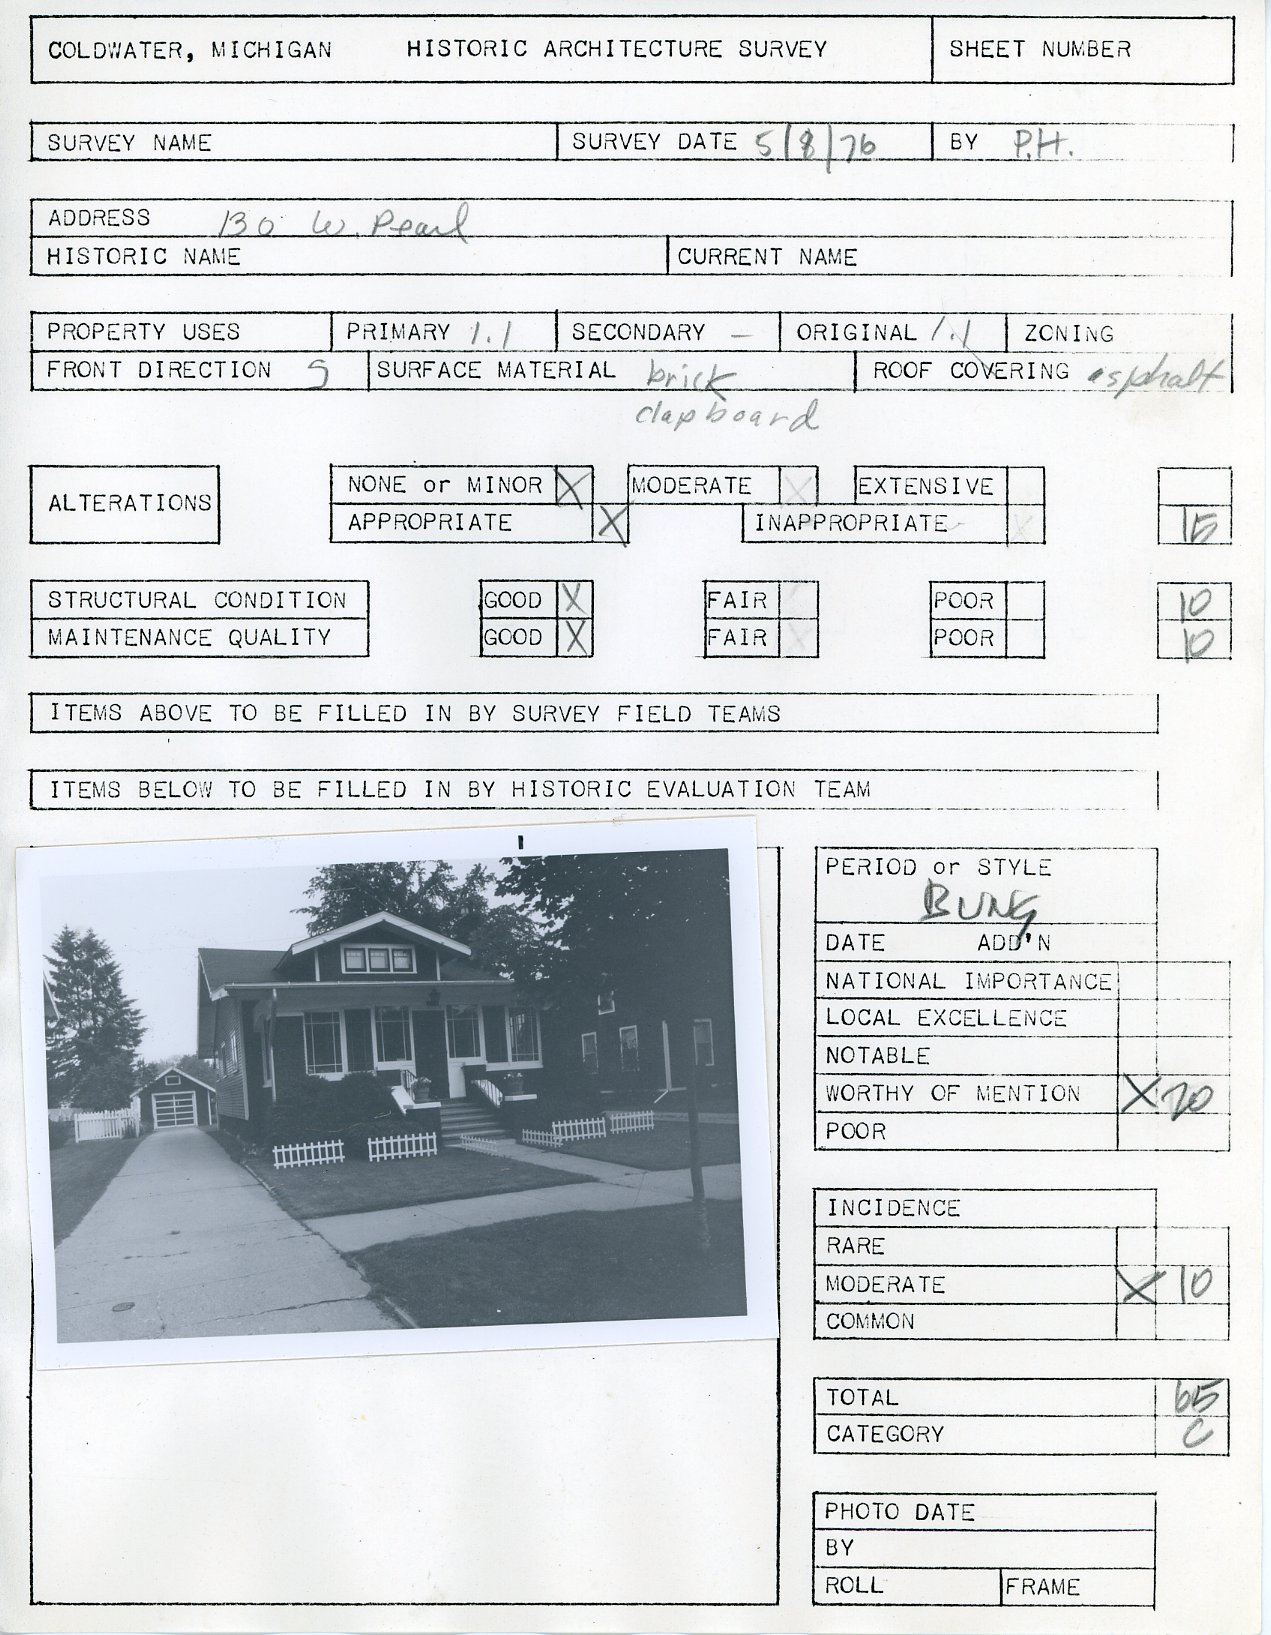 COLDWATER, MICHIGAN HISTORIC ARCHITECTURE SURVEY SHEET NUMBER
SURVEY NAME SURVEY DATE 5/8/76 BY P.H.
ADDRESS 130 W. Pearl
HISTORIC NAME CURRENT NAME
PROPERTY USES PRIMARY 1.1 SECONDARY – ORIGINAL 1.1 ZONING
FRONT DIRECTION S SURFACE MATERIAL brick ROOF COVERING asphalt
clapboard
ALTERATIONS NONE or MINOR X MODERATE X EXTENSIVE
APPROPRIATE X INAPPROPRIATE X 15
STRUCTURAL CONDITION GOOD X FAIR POOR 10
MAINTENANCE QUALITY GOOD X FAIR X POOR 10
ITEMS ABOVE TO BE FILLED IN BY SURVEY FIELD TEAMS
ITEMS BELOW TO BE FILLED IN BY HISTORIC EVALUATION TEAM
PERIOD or STYLE
BUNG
DATE ADD'N
NATIONAL IMPORTANCE
LOCAL EXCELLENCE
NOTABLE
WORTHY OF MENTION X 20
POOR
INCIDENCE
RARE
MODERATE X 10
COMMON
TOTAL 65
CATEGORY C
PHOTO DATE
BY
ROLL FRAME